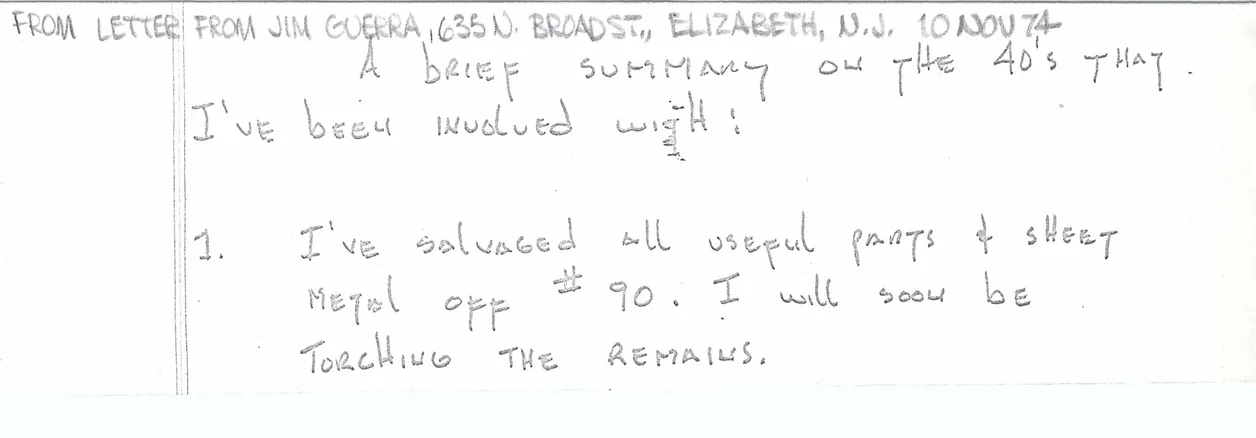 FROM LETTER FROM JIM GUERRA, 635 N. BROAD ST., ELIZABETH, N.J. 10 NOV 74
A brief summary on the 40's that
I've been involved with:
1. I've salvaged all useful parts & sheet
metal off #90. I will soon be
torching the remains.